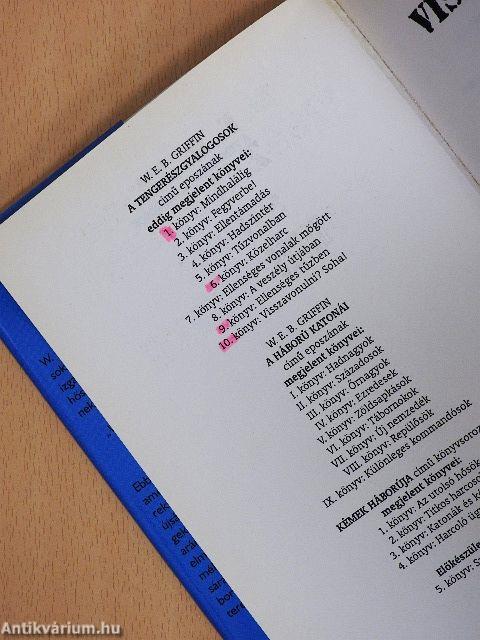 VIS
W. E. B. GRIFFIN
A TENGERÉSZGYALOGOSOK
című eposzának
eddig megjelent könyvei:
1. könyv: Mindhalálig
2. könyv: Fegyverbe!
3. könyv: Ellentámadás
4. könyv: Hadszíntér
5. könyv: Tűzvonalban
6. könyv: Közelharc
7. könyv: Ellenséges vonalak mögött
8. könyv: A veszély útjában
9. könyv: Ellenséges tűzben
10. könyv: Visszavonulni? Soha!
W. E. B. GRIFFIN
A HÁBORÚ KATONÁI
című eposzának
megjelent könyvei:
I. könyv: Hadnagyok
II. könyv: Századosok
III. könyv: Őrnagyok
IV. könyv: Ezredesek
V. könyv: Zöldsapkások
VI. könyv: Tábornokok
VII. könyv: Új nemzedék
VIII. könyv: Repülősök
IX. könyv: Különleges kommandósok
KÉMEK HÁBORÚJA című könyvsoroz
megjelent könyvei:
1. könyv: Az utolsó hősök
2. könyv: Titkos harcosok
3. könyv: Katonák és k
4. könyv: Harcoló ügy
Előkészüle
5. könyv: S
W.
sok
izga
hős
nek
Ebb
ame
rek
újsz
gek
ará
elm
mél
sára
bor
tere
Antikvárium.hu